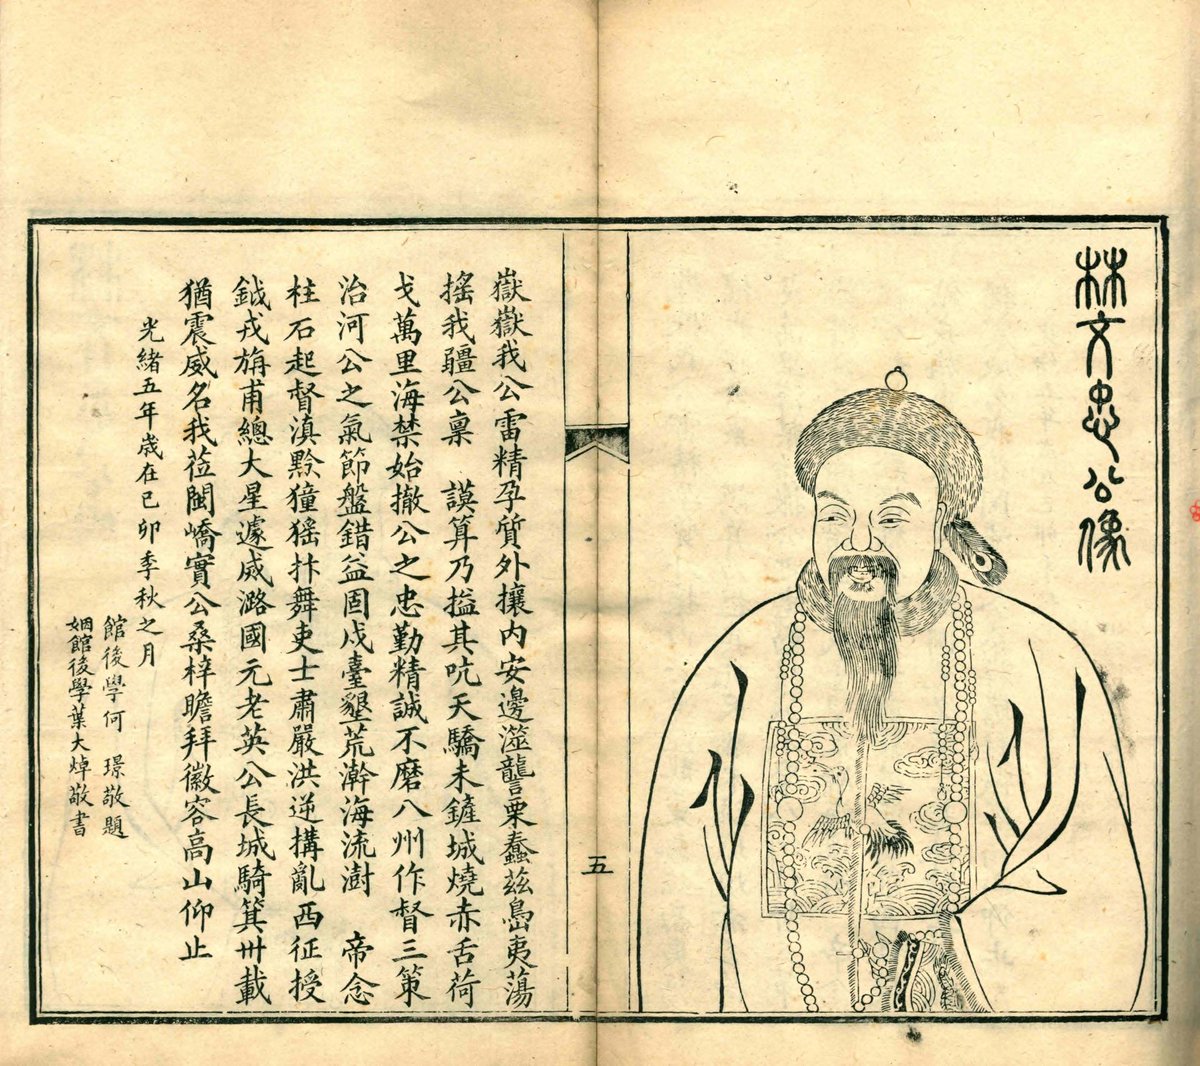 林文忠公像
五
嶽嶽我公雷精孕質外攘內安邊澨讋栗蠢茲島夷蕩
搖我疆公稟　謨算乃搤其吭天驕未鏟城燒赤舌荷
戈萬里海禁始撤公之忠勤精誠不磨八州作督三策
治河公之氣節盤錯益固戍臺墾荒瀚海流澍　帝念
柱石起督滇黔獞猺抃舞吏士肅嚴洪逆搆亂西征授
鉞戎旃甫總大星遽滅潞國元老英公長城騎箕卅載
猶震威名我莅閩嶠實公桑梓瞻拜徽容高山仰止
光緒五年歲在己卯季秋之月
館後學何　璟敬題
姻館後學葉大焯敬書